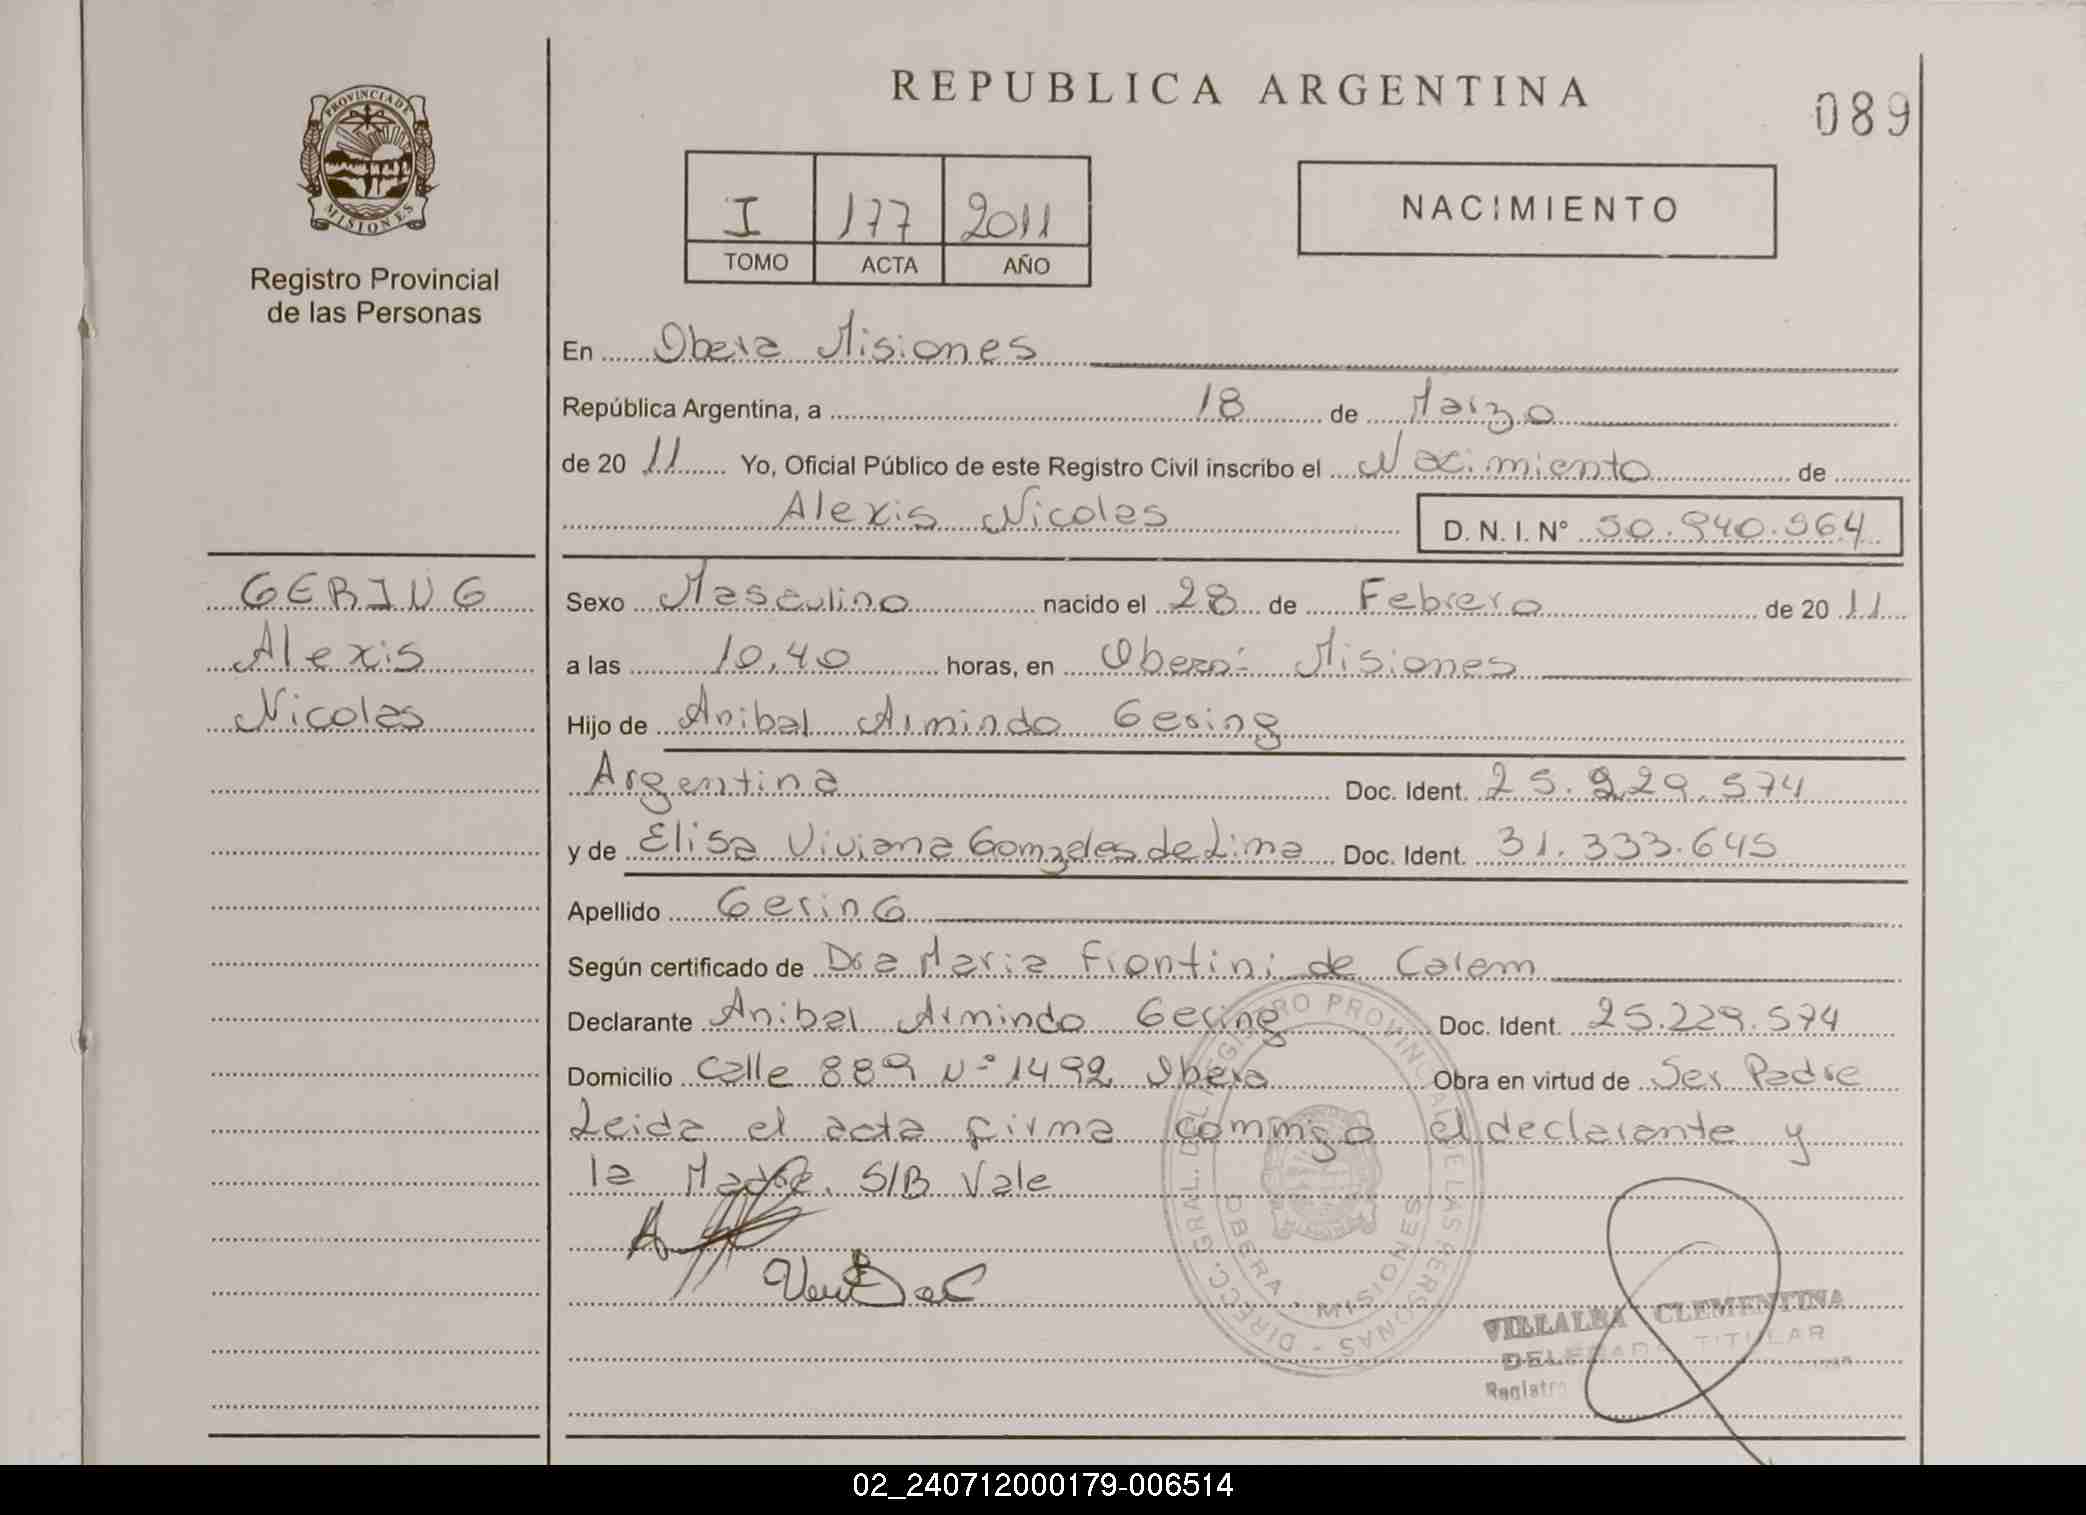 REPUBLICA ARGENTINA
089
PROVINCIA DE MISIONES
Registro Provincial
de las Personas
I 177 2011
TOMO ACTA AÑO
NACIMIENTO
En Obera Misiones
República Argentina, a 18 de Marzo
de 20 11 Yo, Oficial Público de este Registro Civil inscribo el Nacimiento de
Alexis Nicolas D. N. I. N° 50.940.964
GERING
Alexis
Nicolas
Sexo Masculino nacido el 28 de Febrero de 20 11
a las 10,40 horas, en Oberá Misiones
Hijo de Anibal Armindo Gering
Argentina Doc. Ident. 25.229.574
y de Elisa Viviana Gomzeles de Lima Doc. Ident. 31.333.645
Apellido GerinG
Según certificado de Dra Maria Frontini de Calem
Declarante Anibal Armindo Gering Doc. Ident. 25.229.574
Domicilio Calle 889 N° 1492 Obera Obra en virtud de Ser Padre
Leida el acta firma commigo el declarante y
la Madre. S/B Vale
DIREC. GRAL. DEL REGISTRO PROVINCIAL DE LAS PERSONAS
OBERA - MISIONES
VILLALBA CLEMENTINA
DELEGADA TITULAR
Registro
02_240712000179-006514